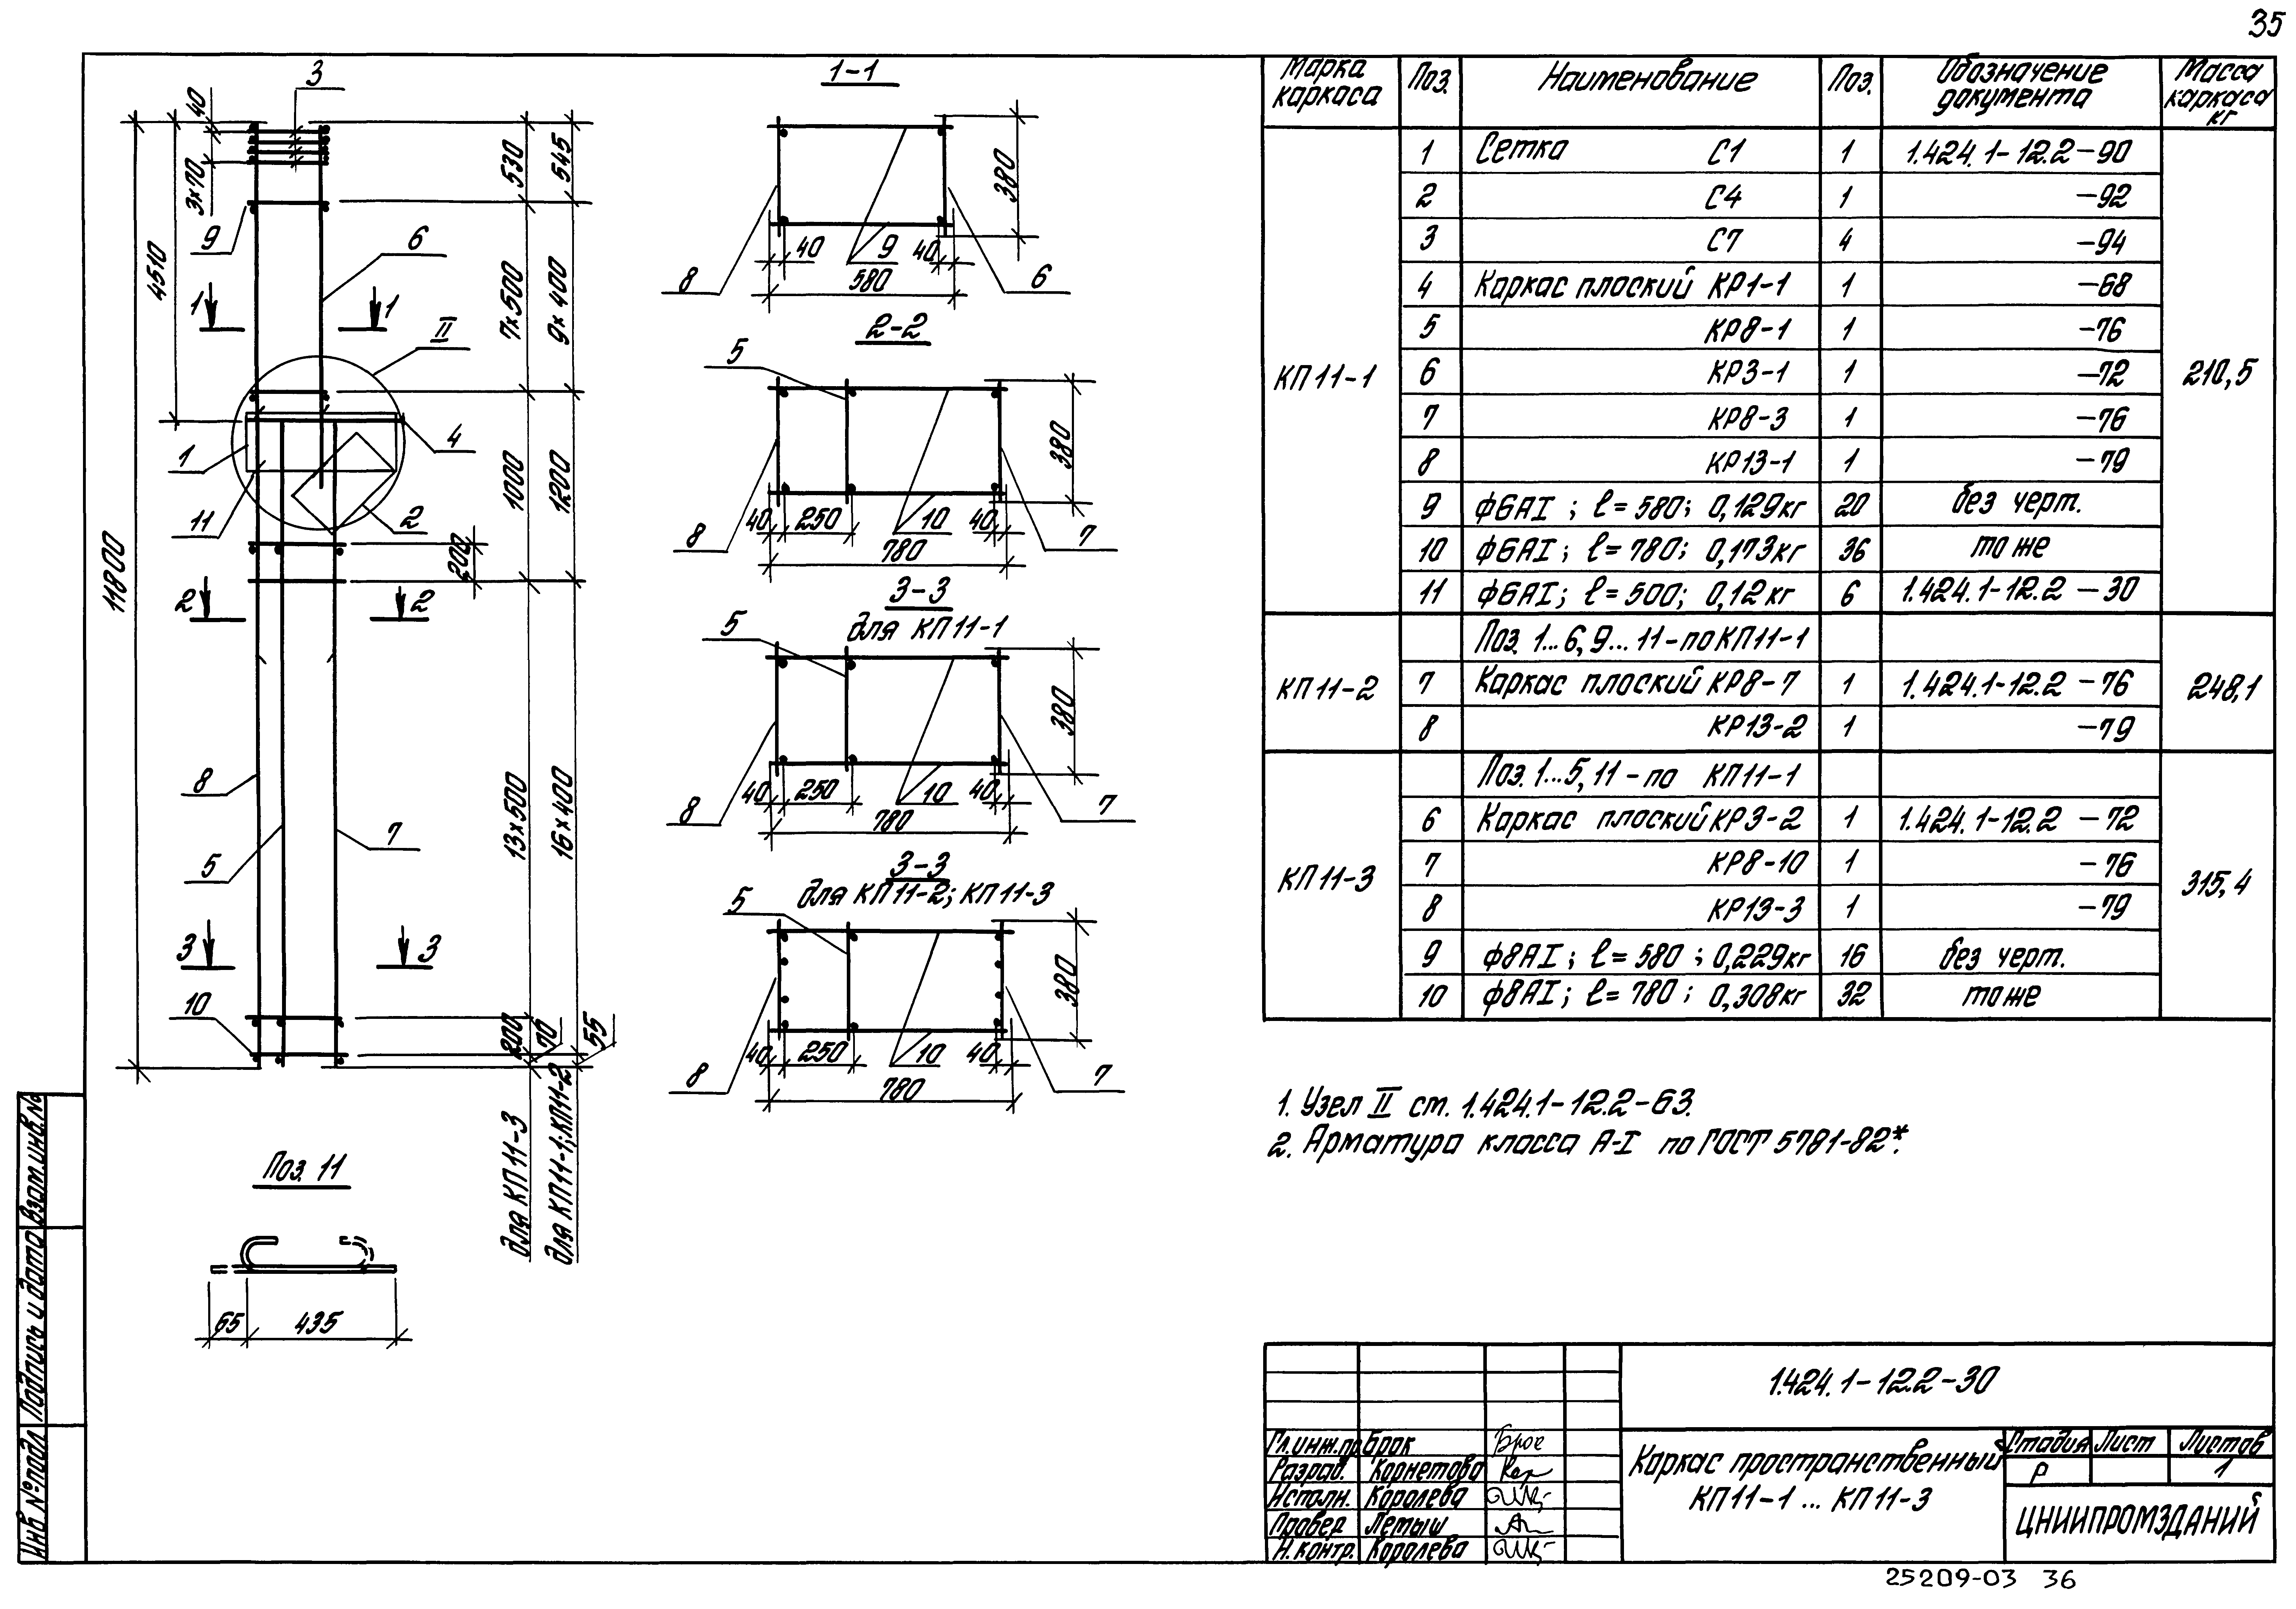 35
3
40
3×70
4510
11800
9
6
1
1
II
1
4
11
2
200
2
2
8
5
7
3
3
10
530
545
7×500
9×400
1000
1200
13×500
16×400
200
70
55
для КП11-3
для КП11-1; КП11-2
Поз. 11
65
435
1-1
380
40
9
40
580
8
6
2-2
5
380
40
250
10
40
780
8
7
3-3
для КП11-1
5
380
40
250
10
40
780
8
7
3-3
для КП11-2; КП11-3
5
380
40
250
10
40
780
8
7
Марка каркаса Поз. Наименование Поз. Обозначение документа Масса каркаса кг
КП11-1 210,5
1 Сетка С1 1 1.424.1-12.2-90
2 С4 1 -92
3 С7 4 -94
4 Каркас плоский КР1-1 1 -68
5 КР8-1 1 -76
6 КР3-1 1 -72
7 КР8-3 1 -76
8 КР13-1 1 -79
9 ф6АI; ℓ=580; 0,129кг 20 без черт.
10 ф6АI; ℓ=780; 0,173кг 36 то же
11 ф6АI; ℓ=500; 0,12кг 6 1.424.1-12.2-30
КП11-2 248,1
Поз. 1...6, 9...11-по КП11-1
7 Каркас плоский КР8-7 1 1.424.1-12.2-76
8 КР13-2 1 -79
КП11-3 315,4
Поз. 1...5, 11-по КП11-1
6 Каркас плоский КР3-2 1 1.424.1-12.2-72
7 КР8-10 1 -76
8 КР13-3 1 -79
9 ф8АI; ℓ=580; 0,229кг 16 без черт.
10 ф8АI; ℓ=780; 0,308кг 32 то же
1. Узел II ст. 1.424.1-12.2-63.
2. Арматура класса А-I по ГОСТ 5781-82*.
1.424.1-12.2-30
Гл.инж.пр Брок
Разраб. Корнетова
Исполн. Королева
Провер Летыш
Н.контр. Королева
Каркас пространственный
КП11-1 ... КП11-3
Стадия Лист Листов
Р 1
ЦНИИПРОМЗДАНИЙ
Взам.инв.№
Подпись и дата
Инв №подл
25209-03 36